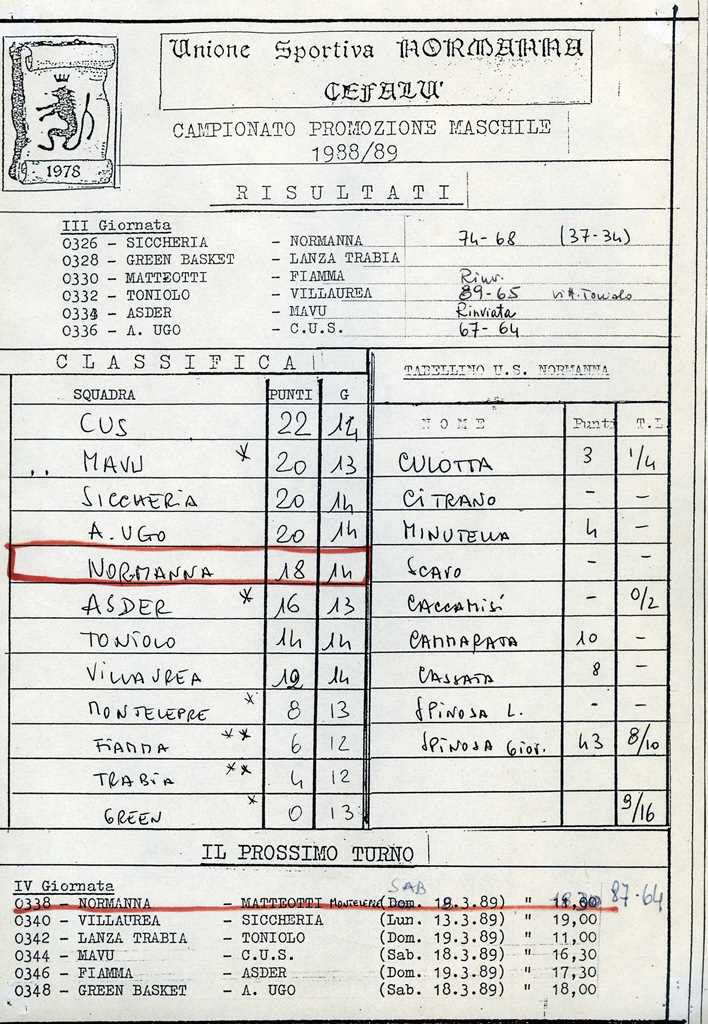 Unione Sportiva NORMANNA
CEFALU'
1978
CAMPIONATO PROMOZIONE MASCHILE
1988/89
RISULTATI
III Giornata
0326 - SICCHERIA - NORMANNA 74-68 (37-34)
0328 - GREEN BASKET - LANZA TRABIA
0330 - MATTEOTTI - FIAMMA Rinv.
0332 - TONIOLO - VILLAUREA 89-65 vitt. Toniolo
0334 - ASDER - MAVU Rinviata
0336 - A. UGO - C.U.S. 67-64
CLASSIFICA
SQUADRA PUNTI G
CUS 22 14
MAVU * 20 13
SICCHERIA 20 14
A. UGO 20 14
NORMANNA 18 14
ASDER * 16 13
TONIOLO 14 14
VILLAUREA 12 14
MONTELEPRE * 8 13
FIAMMA ** 6 12
TRABIA ** 4 12
GREEN * 0 13
TABELLINO U.S. NORMANNA
NOME Punti T.L
CULOTTA 3 1/4
CITRANO - -
MINUTELLA 4 -
SCAVO - -
CACCAMISI - 0/2
CAMMARATA 10 -
CASSATA 8 -
SPINOSA L. - -
SPINOSA Giov. 43 8/10
9/16
IL PROSSIMO TURNO
IV Giornata
SAB
0338 - NORMANNA - MATTEOTTI MONTELEPRE (Dom. 19.3.89) " 87-64
0340 - VILLAUREA - SICCHERIA (Lun. 13.3.89) " 19,00
0342 - LANZA TRABIA - TONIOLO (Dom. 19.3.89) " 11,00
0344 - MAVU - C.U.S. (Sab. 18.3.89) " 16,30
0346 - FIAMMA - ASDER (Dom. 19.3.89) " 17,30
0348 - GREEN BASKET - A. UGO (Sab. 18.3.89) " 18,00